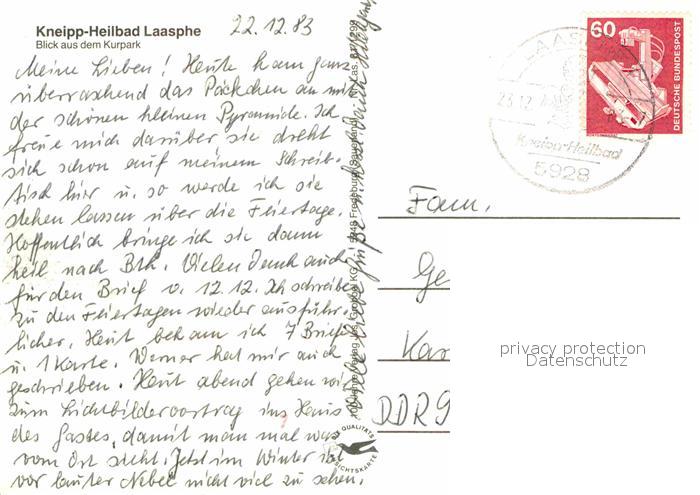 Kneipp-Heilbad Laasphe
Blick aus dem Kurpark
22.12.83
Meine Lieben! Heute kam ganz
überraschend das Päckchen an mit
der schönen kleinen Pyramide. Ich
freue mich darüber sie dreht
sich schon auf meinem Schreib-
tisch hier u. so werde ich sie
stehen lassen über die Feiertage.
Hoffentlich bringe ich sie dann
heil nach Blk. Vielen Dank auch
für den Brief v. 12.12. Ich schreibe
zu den Feiertagen wieder ausführ-
licher. Heut bekam ich 7 Briefe
u. 1 Karte. Werner hat mir auch
geschrieben. Heut abend gehen wir
zum Lichtbildervortrag ins Haus
des Gastes, damit man mal was
vom Ort sieht. Jetzt im Winter ist
vor lauter Nebel nicht viel zu sehen.
Viele liebe Grüße
60
DEUTSCHE BUNDESPOST
LAAS
23.12.
Kneipp-Heilbad
5928
Fam.
Ge
Kar
DDR 9
privacy protection
Datenschutz